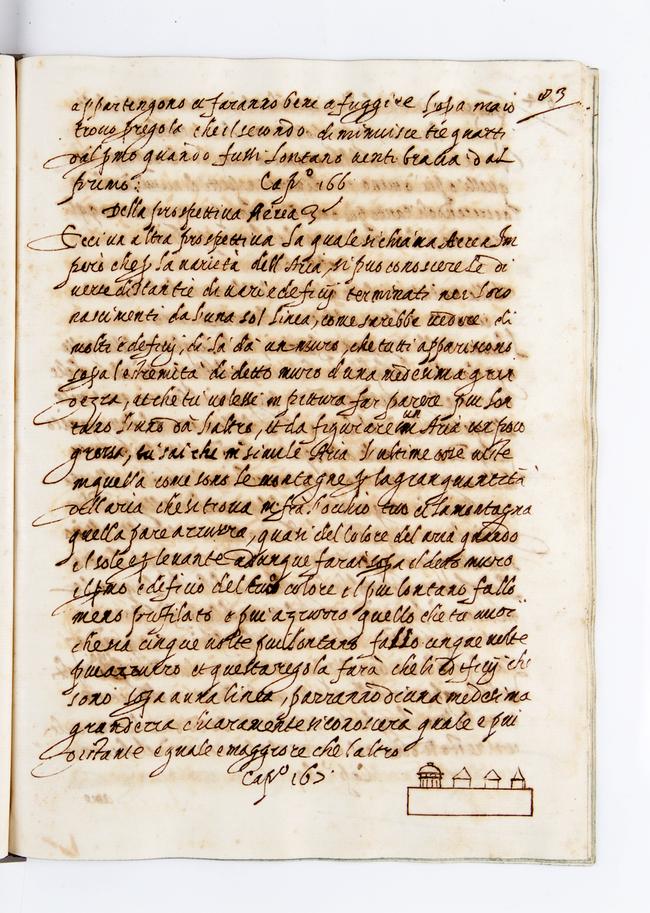 83
appartengono et faranno bene a fuggire sopa mai o
trovo pregola che il secondo diminuisce tre quarti
dal pmo quando fussi lontano venti bracia dal
primo. Capo 166
Della prospettiva Aerea
Ecci un altra prospettiva la quale si chiama Aerea Im
però che p la varietà dell Aria, si puo conoscere le di
verse distantie di varii edeficij terminati nei loro
nascimenti da l'una sol linea, come sarebbe vedere di
molti edeficij, di là dà un muro, che tutti appariscono
sopa l'estremità di detto muro d'una medesima gran
dezza, et che tu volessi in pittura far parere piu lon
tano l'uno dà l'altro, et da figurare un Aria un poco
grossa, tu sai che in simile Aria l'ultime cose viste
in quella come sono le montagne p la gran quantità
dell aria che si trova infra l'ochio tuo et la montagna
quella pare azzurra, quasi del colore del aria quando
il sole e p levante adunque farai sopa il detto muro
il pmo edeficio del suo colore il piu lontano fallo
meno profilato e piu azzurro quello che tu vuoi
che sia cinque volte piu lontano fallo cinque volte
piu azzurro et questa regola farà che li edeficij che
sono sopa a una linea, parranno di una medesima
grandezza chiaramente si conoscerà quale e piu
distante e quale e maggiore che l'altro
Capo 167